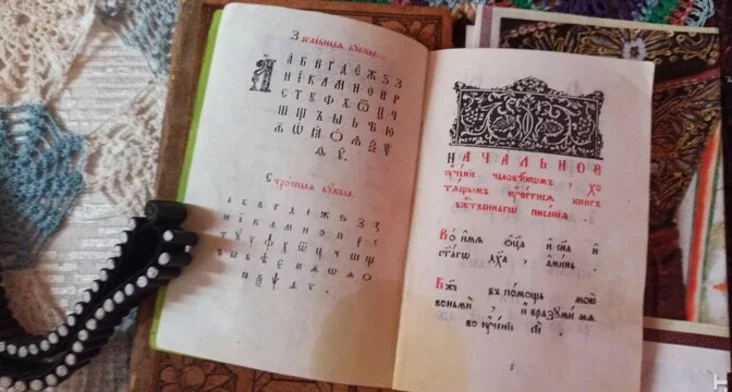 Заглавныя буквы.
А
А Б В Г Д Є Ж Ѕ З
И І К Л М Н О П Р
С Т У Ф Х Ѿ Ц Ч
Ш Щ Ъ Ы Ь Ѣ Ю
Ѫ Ѡ Ѧ Ѯ Ѱ
Ѳ Ѵ.
Строчныя буквы.
а б в г д є ж ѕ з
и і к л м н о п р с
т ꙋ у ф х ѿ ц ч ш щ
ъ ы ь ѣ
ѯ ѱ ѳ ѵ .
НАЧАЛЬНОЕ
ᲂу҆че́нїе человѣ́кѡмъ , хо
тѧ́щымъ ᲂу҆чи́тисѧ кни́гъ
бж҃е́ственнагѡ писа́нїѧ .
Во и҆́мѧ ѻ҆ц҃а̀ и҆ сн҃а и҆
ст҃а́гѡ дх҃а , а҆ми́нь .
Бж҃е въ по́мощь мою̀
вонмѝ , и҆ вразꙋми́ мѧ
во ᲂу҆че́нїе сїѐ .